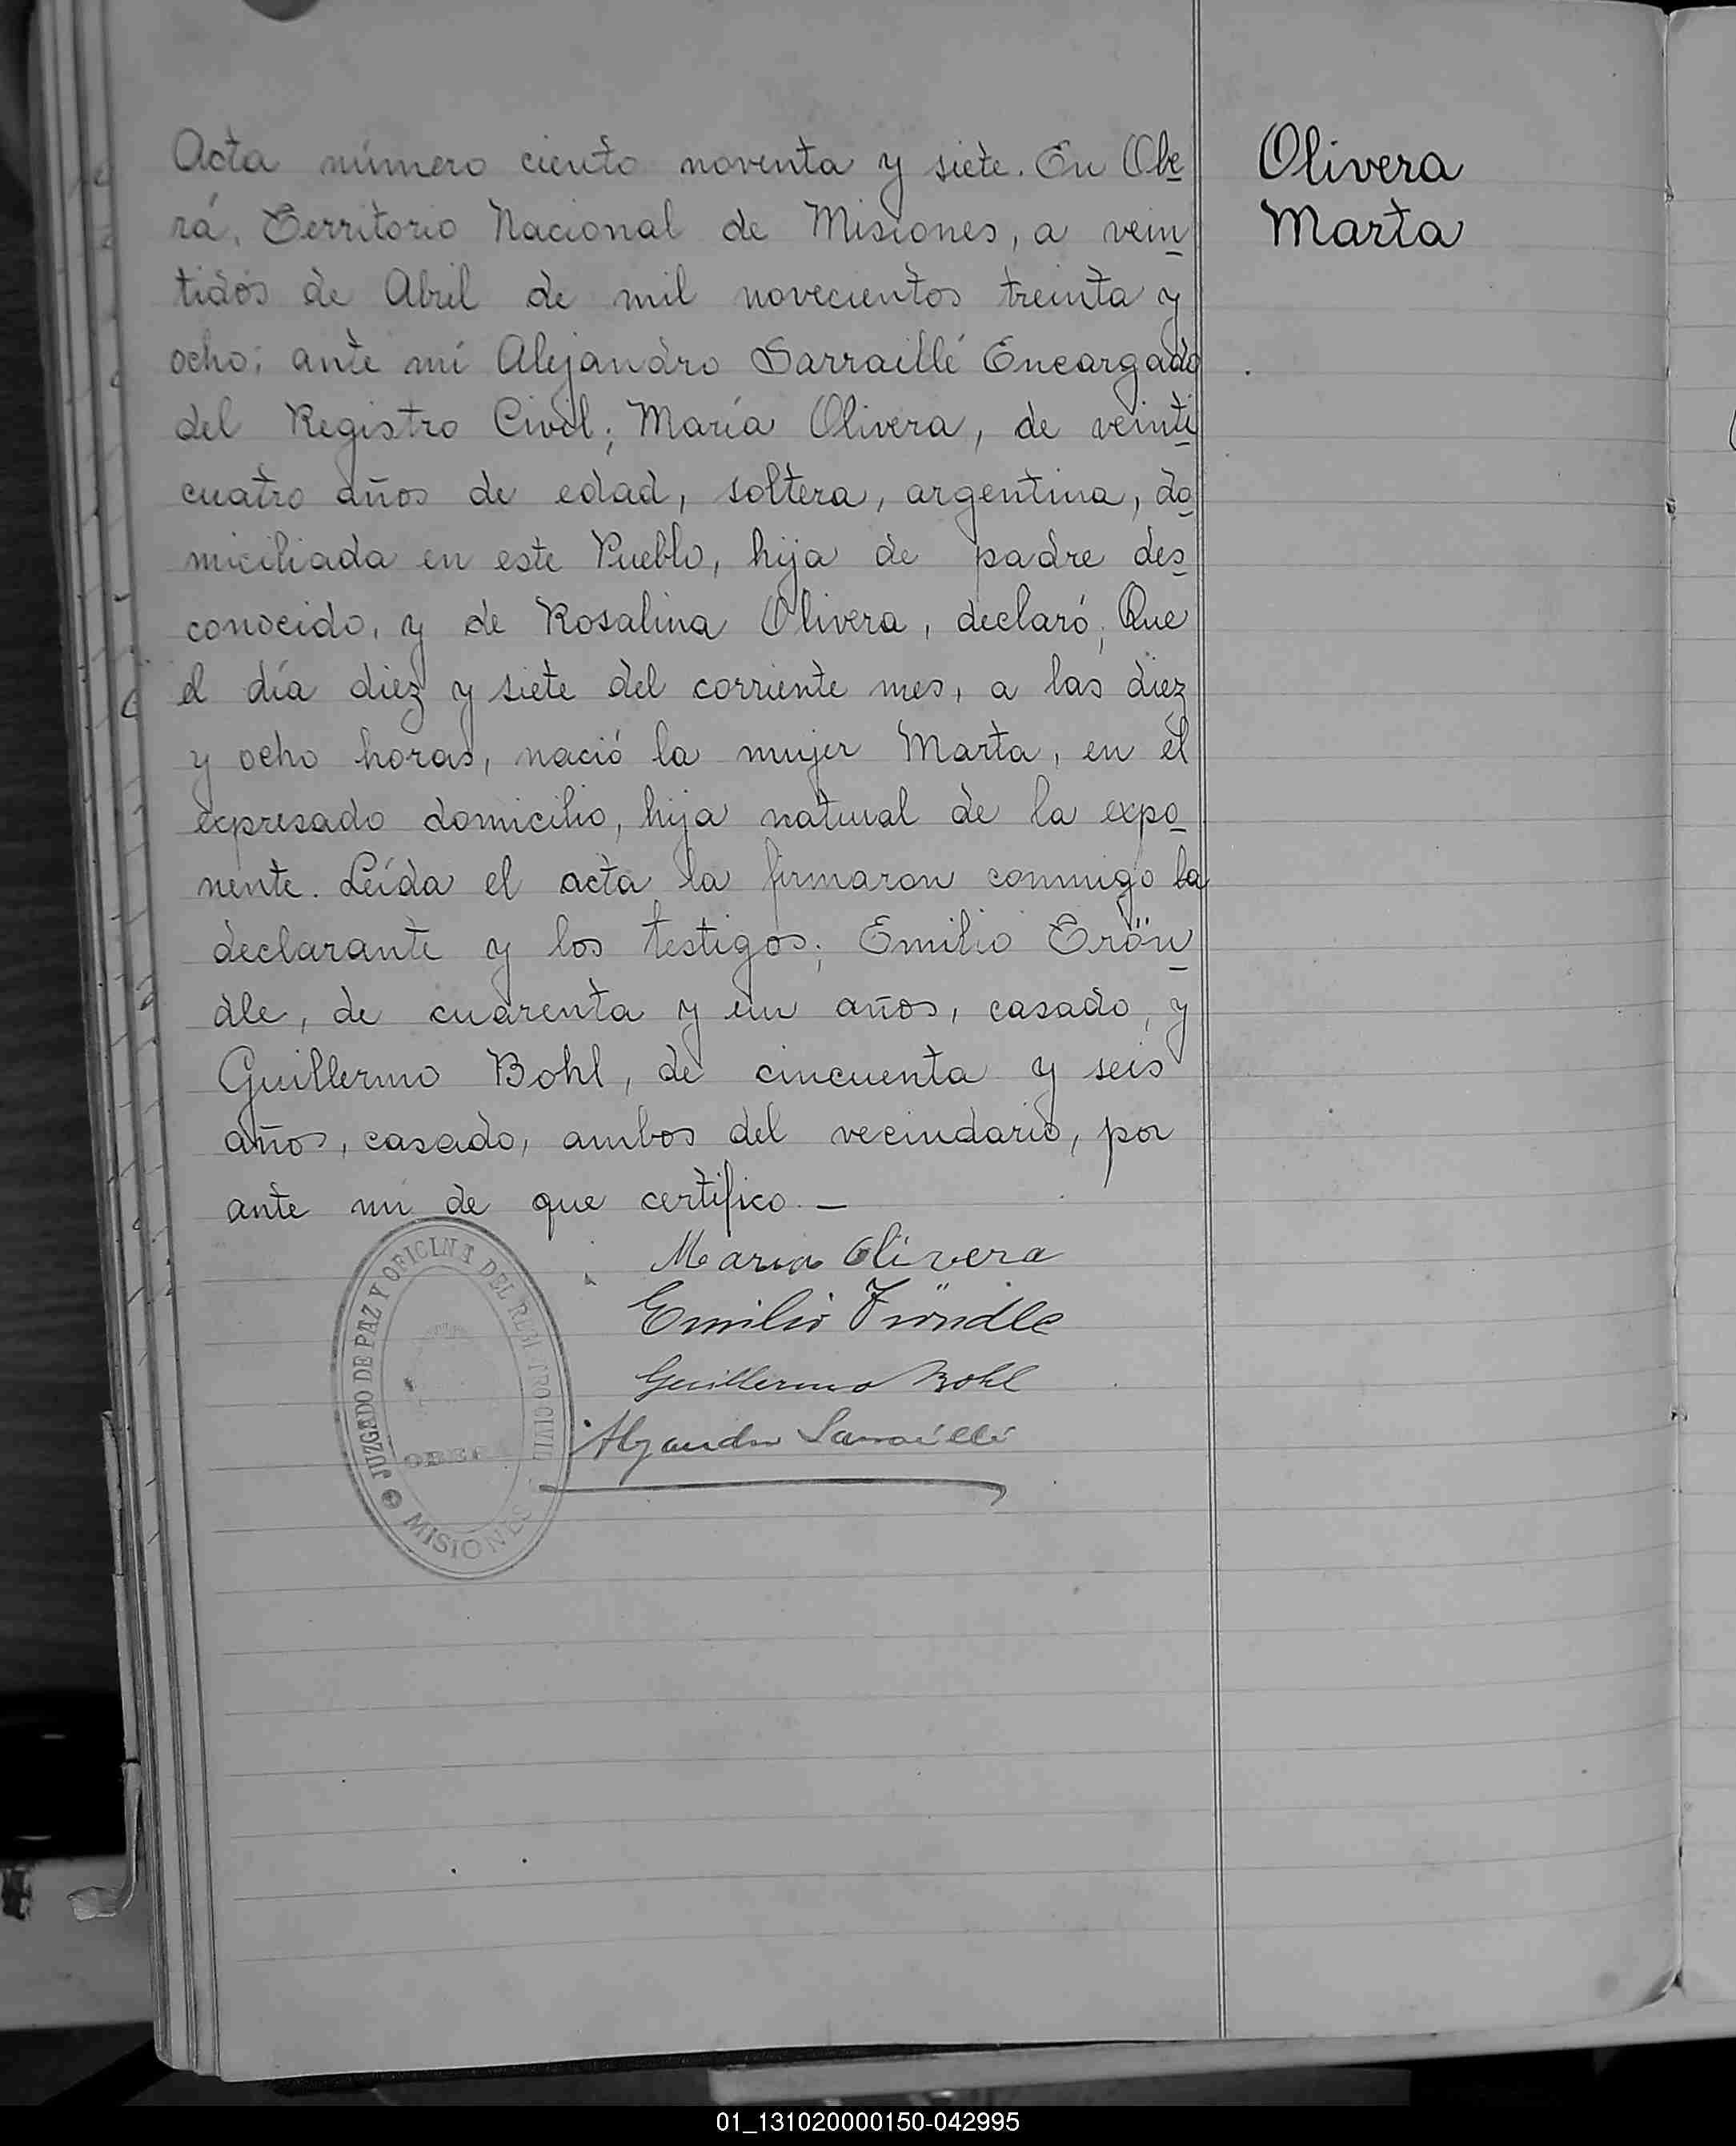 Acta número ciento noventa y siete. En Obe
rá, Territorio Nacional de Misiones, a vein
tidós de Abril de mil novecientos treinta y
ocho; ante mí Alejandro Sarraillé Encargado
del Registro Civil; María Olivera, de veinti
cuatro años de edad, soltera, argentina, do
miciliada en este Pueblo, hija de padre des
conocido, y de Rosalina Olivera, declaró; Que
el día diez y siete del corriente mes, a las diez
y ocho horas, nació la mujer Marta, en el
expresado domicilio, hija natural de la expo
nente. Leída el acta la firmaron conmigo la
declarante y los testigos; Emilio Trön
dle, de cuarenta y un años, casado, y
Guillermo Bohl, de cincuenta y seis
años, casado, ambos del vecindario, por
ante mí de que certifico.—
Maria Olivera
Emilio Tröndle
Guillermo Bohl
Alejandro Sarraillé
JUZGADO DE PAZ Y OFICINA DEL REGISTRO CIVIL
OBERA
MISIONES
Olivera
Marta
01_131020000150-042995